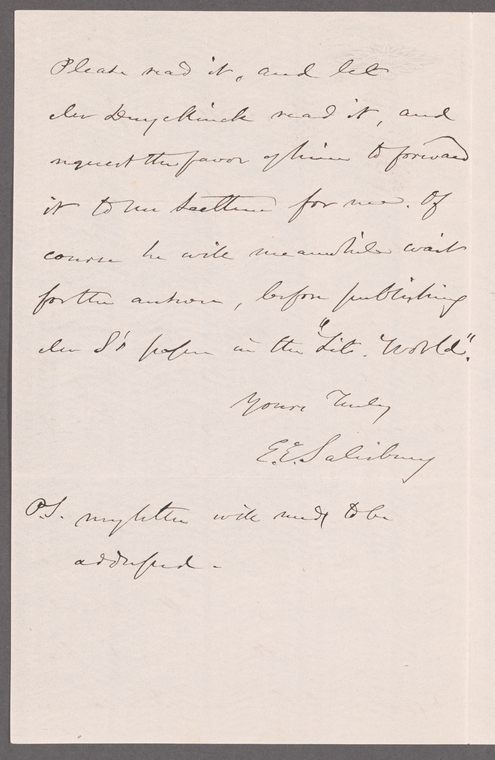 Please read it, and let
Mr Duyckinck read it, and
request the favor of him to forward
it to Mr for me. Of
course he will meanwhile wait
for the answer, before publishing
Mr S's paper in the "Lit. World".
Yours Truly
E.E. Salisbury
P.S. my letter will need to be
addressed -